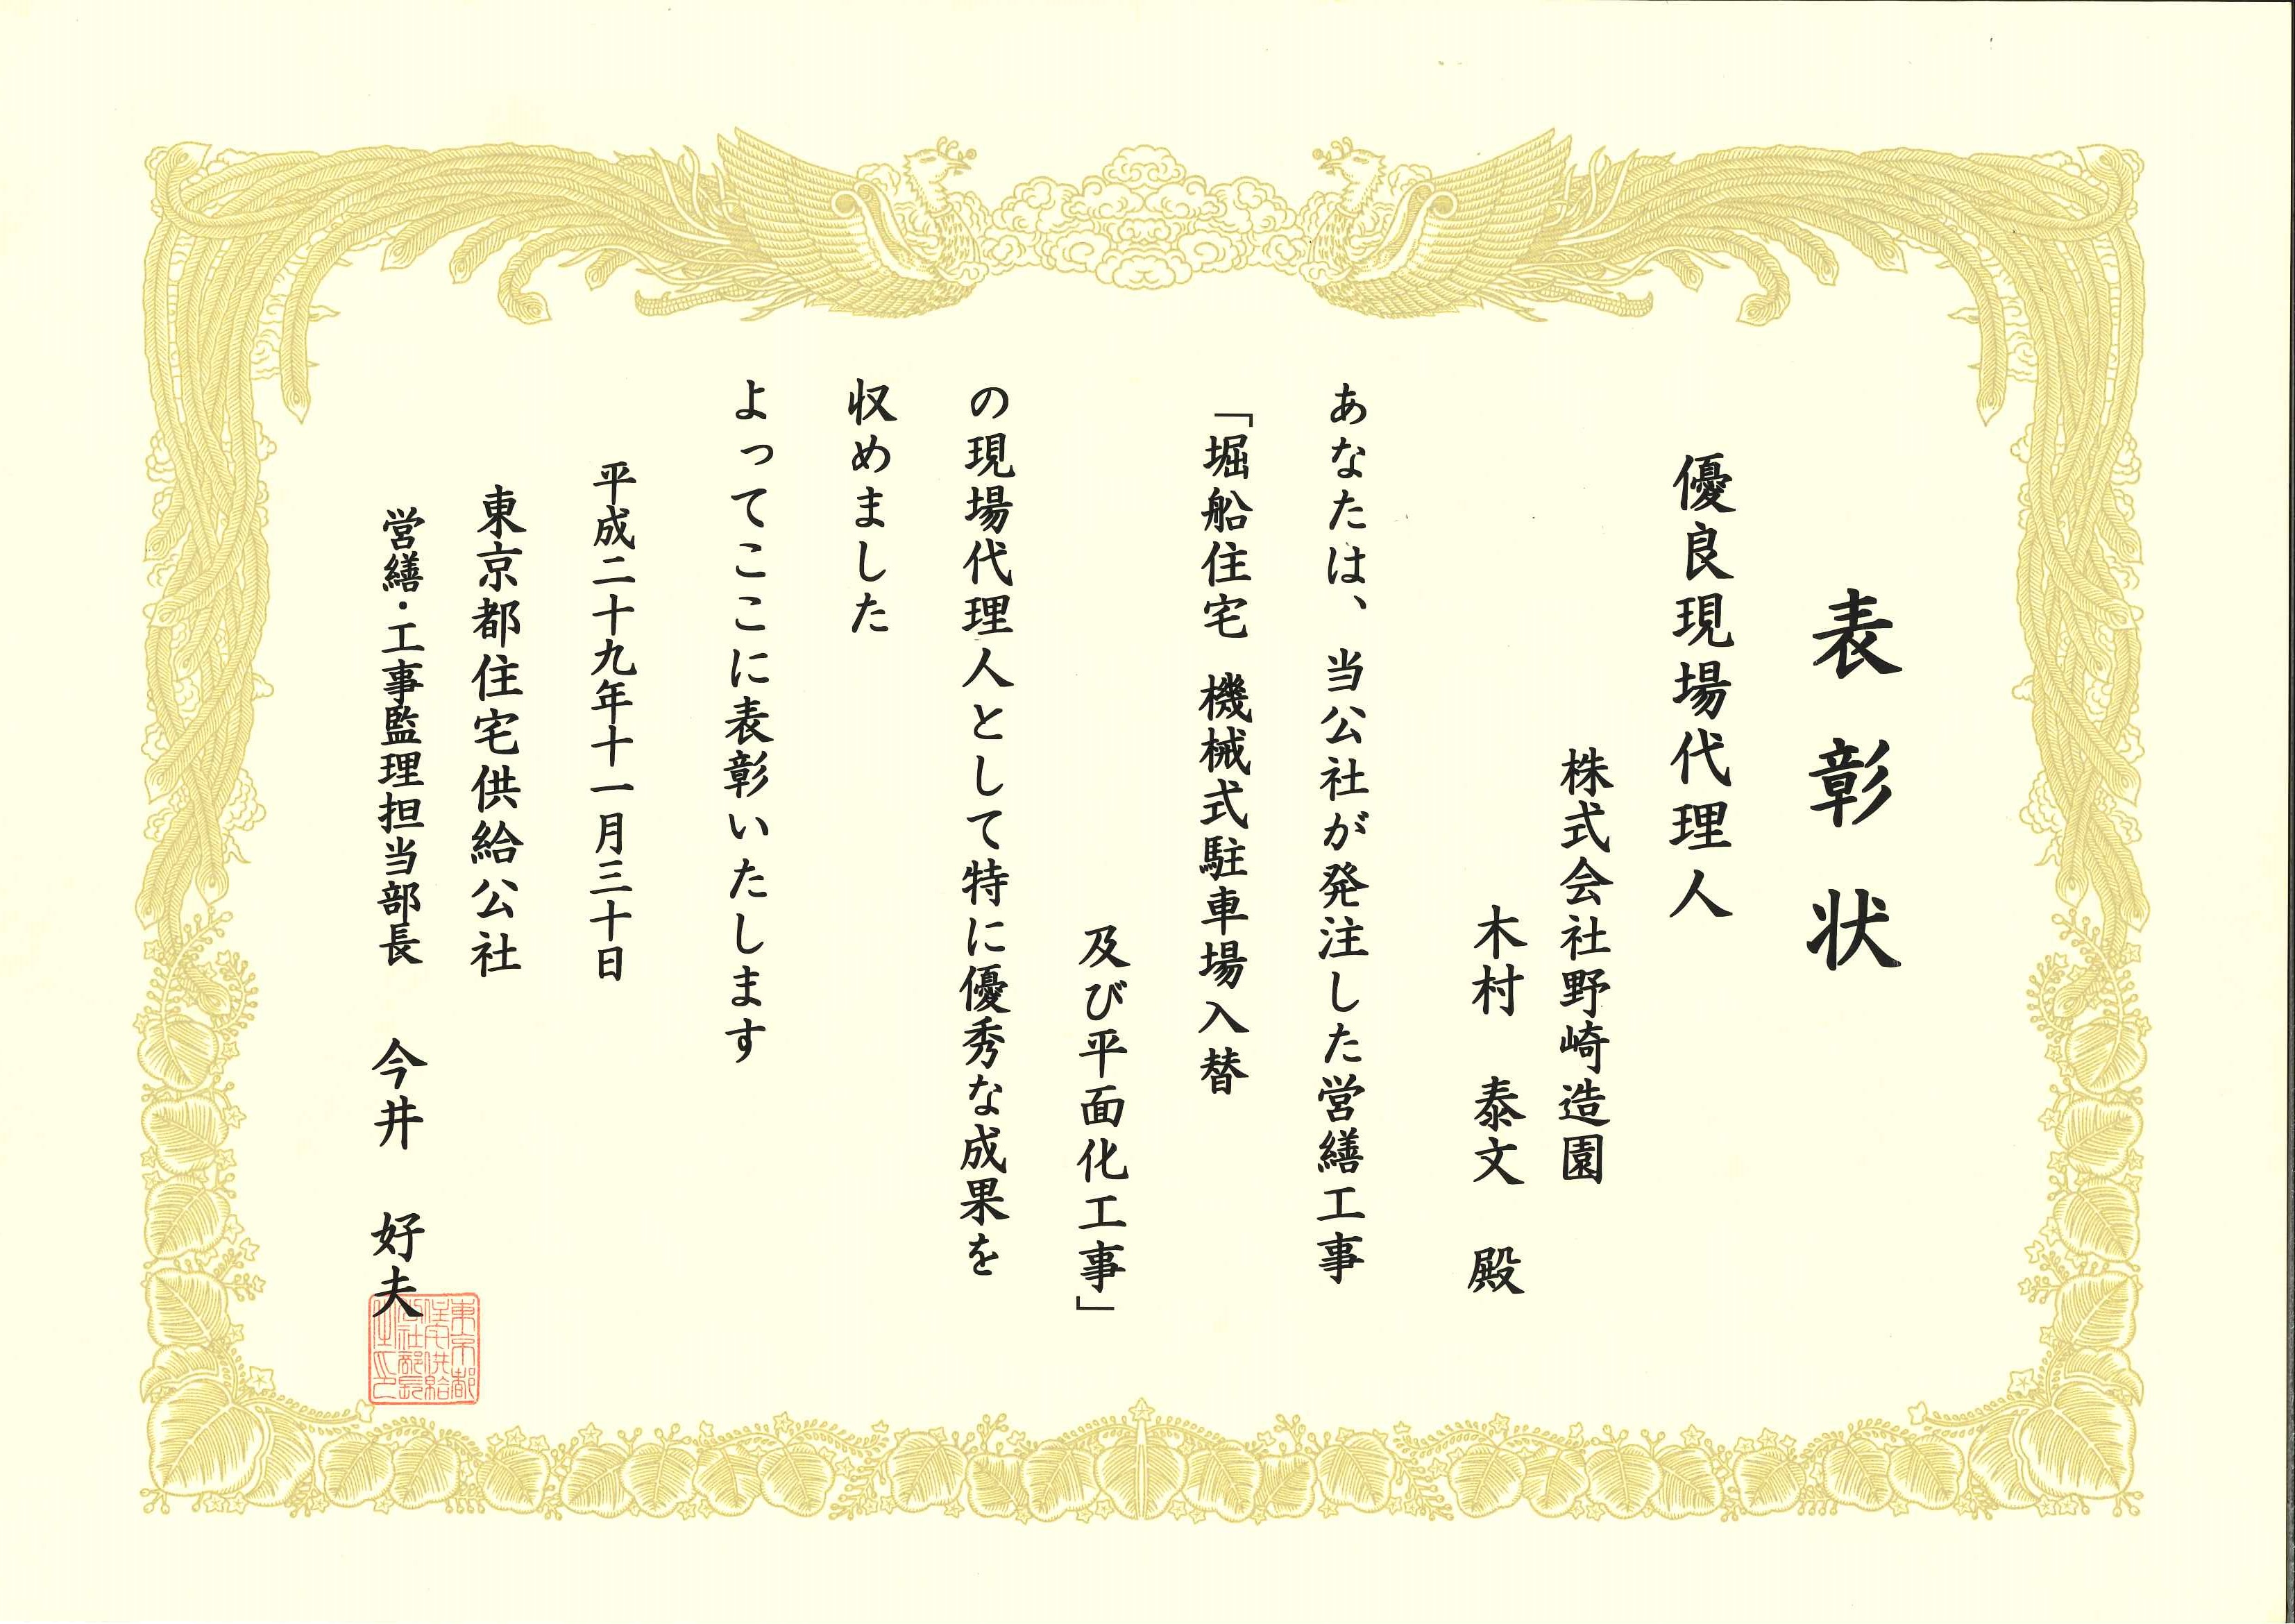 表彰状
優良現場代理人
株式会社野崎造園
木村　泰文　殿
あなたは、当公社が発注した営繕工事
「堀船住宅　機械式駐車場入替
及び平面化工事」
の現場代理人として特に優秀な成果を
収めました
よってここに表彰いたします
平成二十九年十一月三十日
東京都住宅供給公社
営繕・工事監理担当部長　今井　好夫
東京都
住宅供給
公社部長
之印